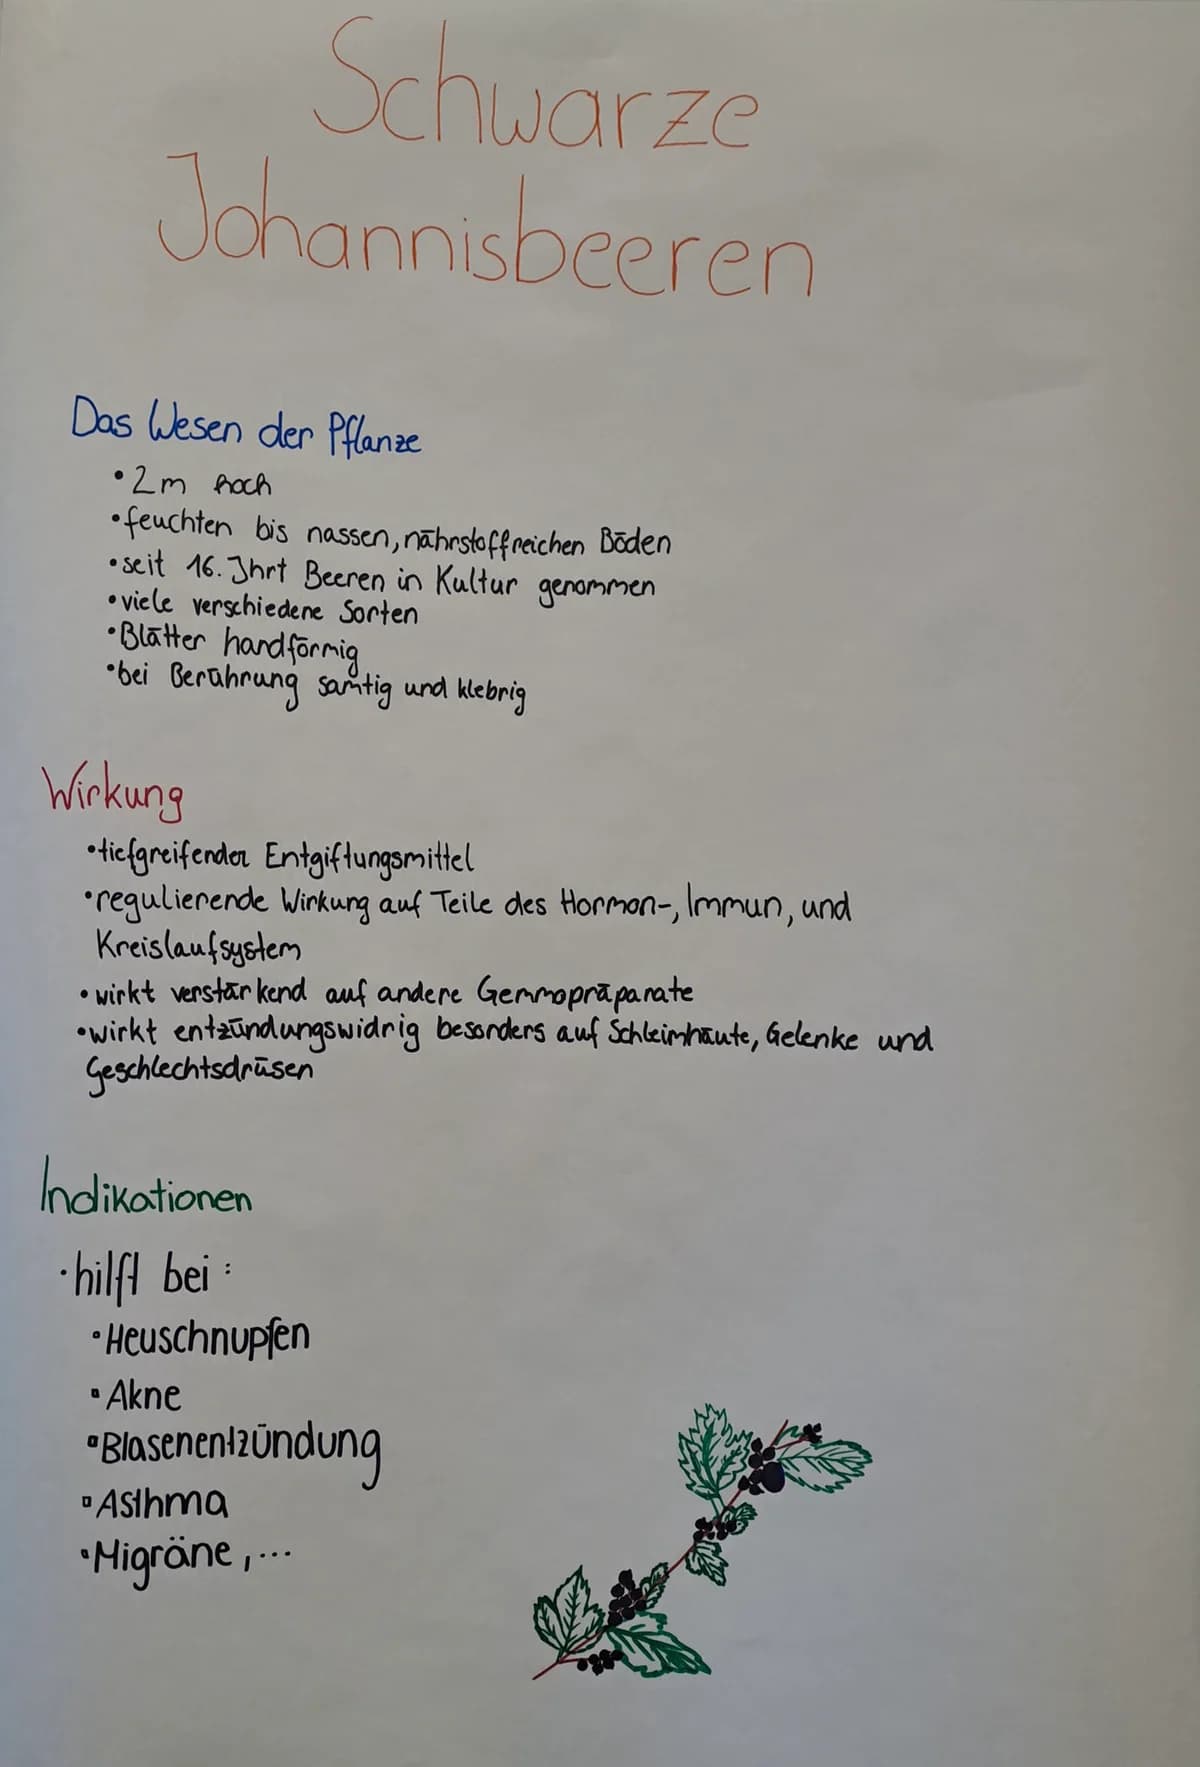 Schwarze
Johannisbeeren
Das Wesen der Pflanze
• 2m hoch
• feuchten bis nassen, nährstoffreichen Böden
• seit 16. Jhrt Beeren in Kultur genommen
• viele verschiedene Sorten
• Blätter handförmig
• bei Berührung samtig und klebrig
Wirkung
• tiefgreifender Entgiftungsmittel
• regulierende Wirkung auf Teile des Hormon-, Immun, und
Kreislaufsystem
• wirkt verstärkend auf andere Gemmopräparate
• wirkt entzündungswidrig besonders auf Schleimhäute, Gelenke und
Geschlechtsdrüsen
Indikationen
· hilft bei :
• Heuschnupfen
▫ Akne
▫ Blasenentzündung
▫ Asthma
▫ Migräne , ...